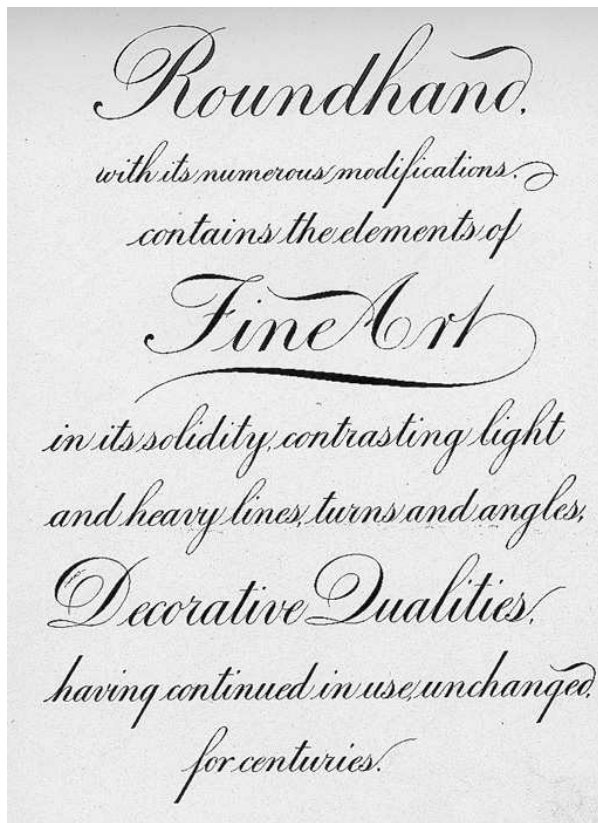 Roundhand,
with its numerous modifications,
contains the elements of
Fine Art
in its solidity, contrasting light
and heavy lines, turns and angles,
Decorative Qualities,
having continued in use, unchanged,
for centuries.